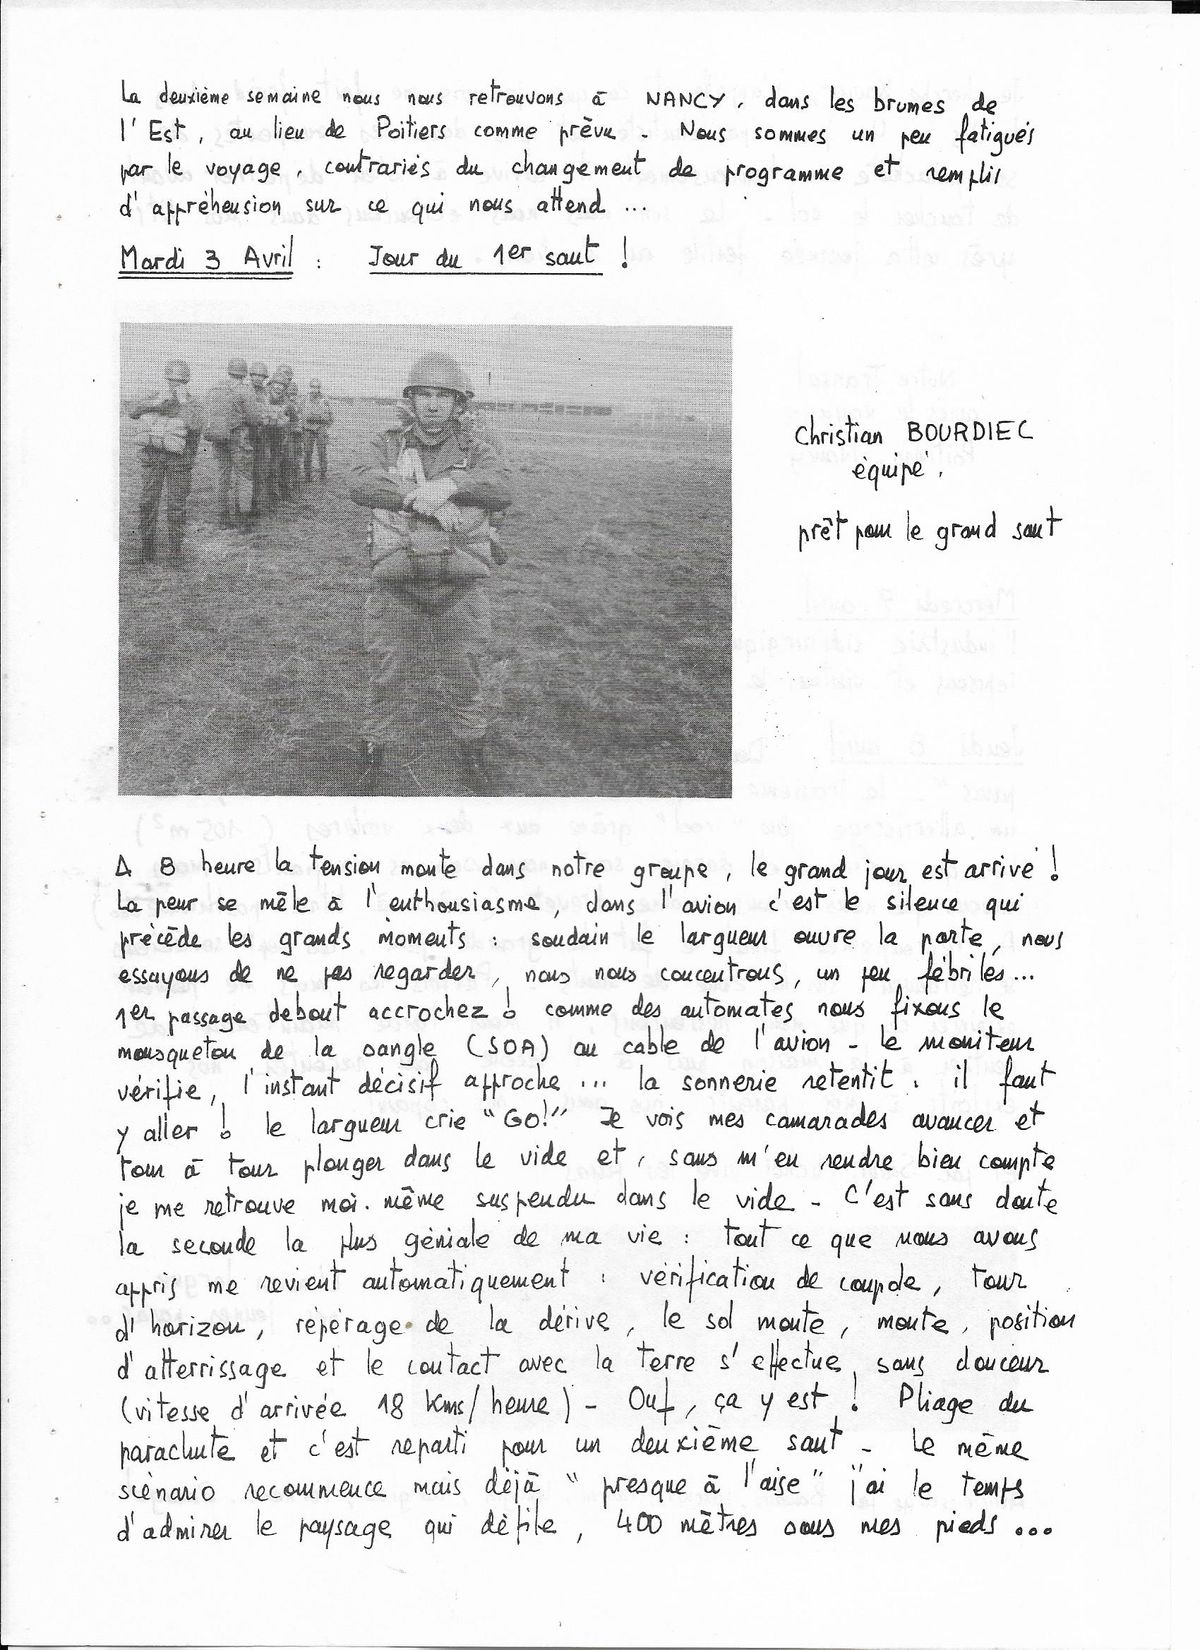 La deuxième semaine nous nous retrouvons à NANCY, dans les brumes de
l'Est, au lieu de Poitiers comme prévu - Nous sommes un peu fatigués
par le voyage, contrariés du changement de programme et remplis
d'appréhension sur ce qui nous attend ...
Mardi 3 Avril : Jour du 1er saut !
Christian BOURDIEC
équipé,
prêt pour le grand saut
A 8 heure la tension monte dans notre groupe, le grand jour est arrivé !
La peur se mêle à l'enthousiasme, dans l'avion c'est le silence qui
précède les grands moments : soudain le largueur ouvre la porte, nous
essayons de ne pas regarder, nous nous concentrons, un peu fébriles...
1er passage debout accrochez ! comme des automates nous fixons le
mousqueton de la sangle (SOA) au cable de l'avion - le moniteur
vérifie, l'instant décisif approche ... la sonnerie retentit : il faut
y aller ! le largueur crie "GO!" Je vois mes camarades avancer et
tour à tour plonger dans le vide et, sans m'en rendre bien compte
je me retrouve moi-même suspendu dans le vide - C'est sans doute
la seconde la plus géniale de ma vie : tout ce que nous avons
appris me revient automatiquement : vérification de coupole, tour
d'horizon, répérage de la dérive, le sol monte, monte, position
d'atterrissage et le contact avec la terre s'effectue, sans douceur
(vitesse d'arrivée 18 Kms/heure) - Ouf, ça y est ! Pliage du
parachute et c'est reparti pour un deuxième saut - Le même
scénario recommence mais déjà "presque à l'aise" j'ai le temps
d'admirer le paysage qui défile, 400 mètres sous mes pieds ...